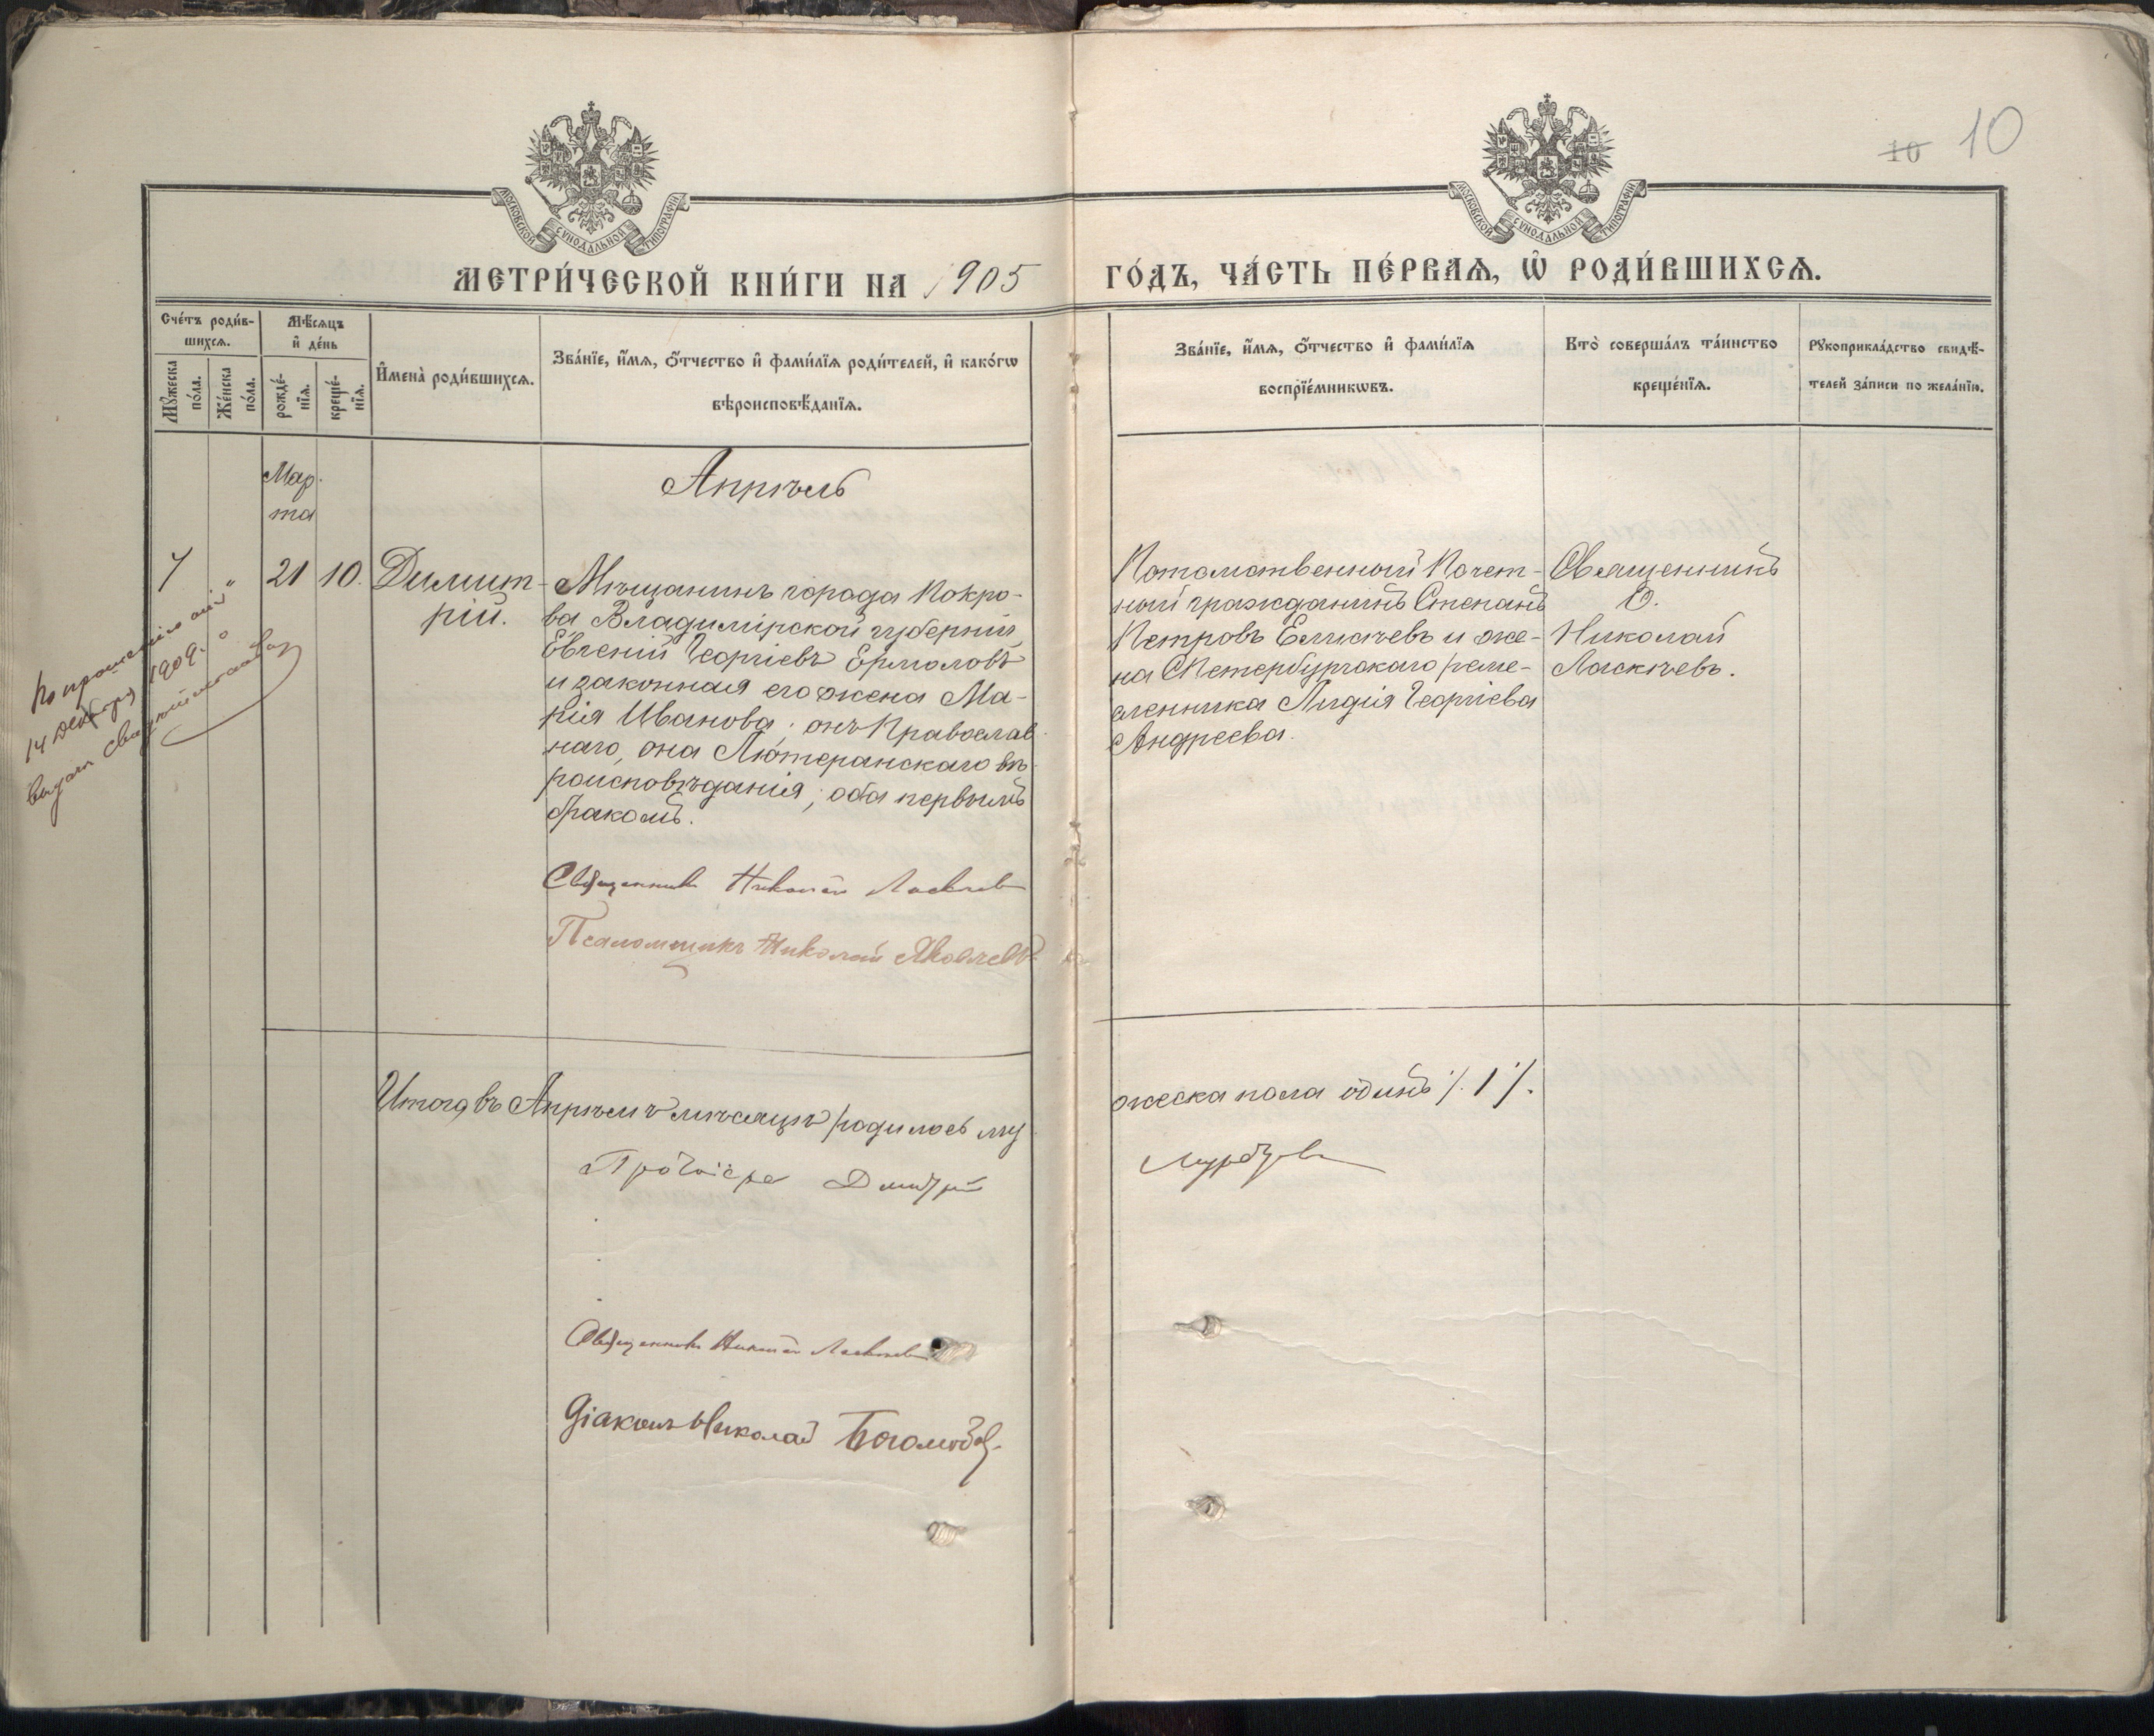 10 10
МОСКОВСКОЙ СУНОДАЛЬНОЙ ТИПОГРАФІИ
МОСКОВСКОЙ СУНОДАЛЬНОЙ ТИПОГРАФІИ
МЕТРИ́ЧЕСКОЙ КНИ́ГИ НА 1905
ГО́ДЪ, ЧА́СТЬ ПЕ́РВАѦ, Ѡ҆ РОДИ́ВШИХСѦ.
Сче́тъ роди́в-
шихсѧ.
Мꙋ́жеска
по́ла.
Же́нска
по́ла.
Мѣ́сѧцъ
и҆ де́нь
рожде́-
нїѧ.
креще́-
нїѧ.
И҆мена̀ роди́вшихсѧ.
Зва́нїе, и҆́мѧ, ѻ҆́тчество и҆ фами́лїѧ роди́телей, и҆ како́гѡ
вѣроисповѣ́данїѧ.
Зва́нїе, и҆́мѧ, ѻ҆́тчество и҆ фами́лїѧ
воспрїе́мникѡвъ.
Кто̀ соверша́лъ та́инство
креще́нїѧ.
Рꙋкоприкла́дство свидѣ́-
телей за́писи по жела́нїю.
Мар-
та
Апрѣль
7 " 21 10. Димит-
рій.
Мѣщанинъ города Покро-
ва Владимірской губерніи
Евгеній Георгіевъ Ермоловъ
и законная его жена Ма-
рія Иванова; онъ Православ-
наго, она Лютеранскаго вѣ-
роисповѣданія; оба первымъ
бракомъ.
Потомственный Почет-
ный гражданинъ Степанъ
Петровъ Елисѣевъ и же-
на СПетербургскаго реме-
сленника Лидія Георгіева
Андреева.
Священникъ
О.
Николай
14 Декабря 1909.
Священникъ Николай
Псаломщикъ Николай Яковлевъ
Итого въ Апрѣлѣ мѣсяцѣ родилось му
жеска пола одинъ /. 1 /.
Протоіерей Димитрій
Священникъ Николай
Діаконъ Николай